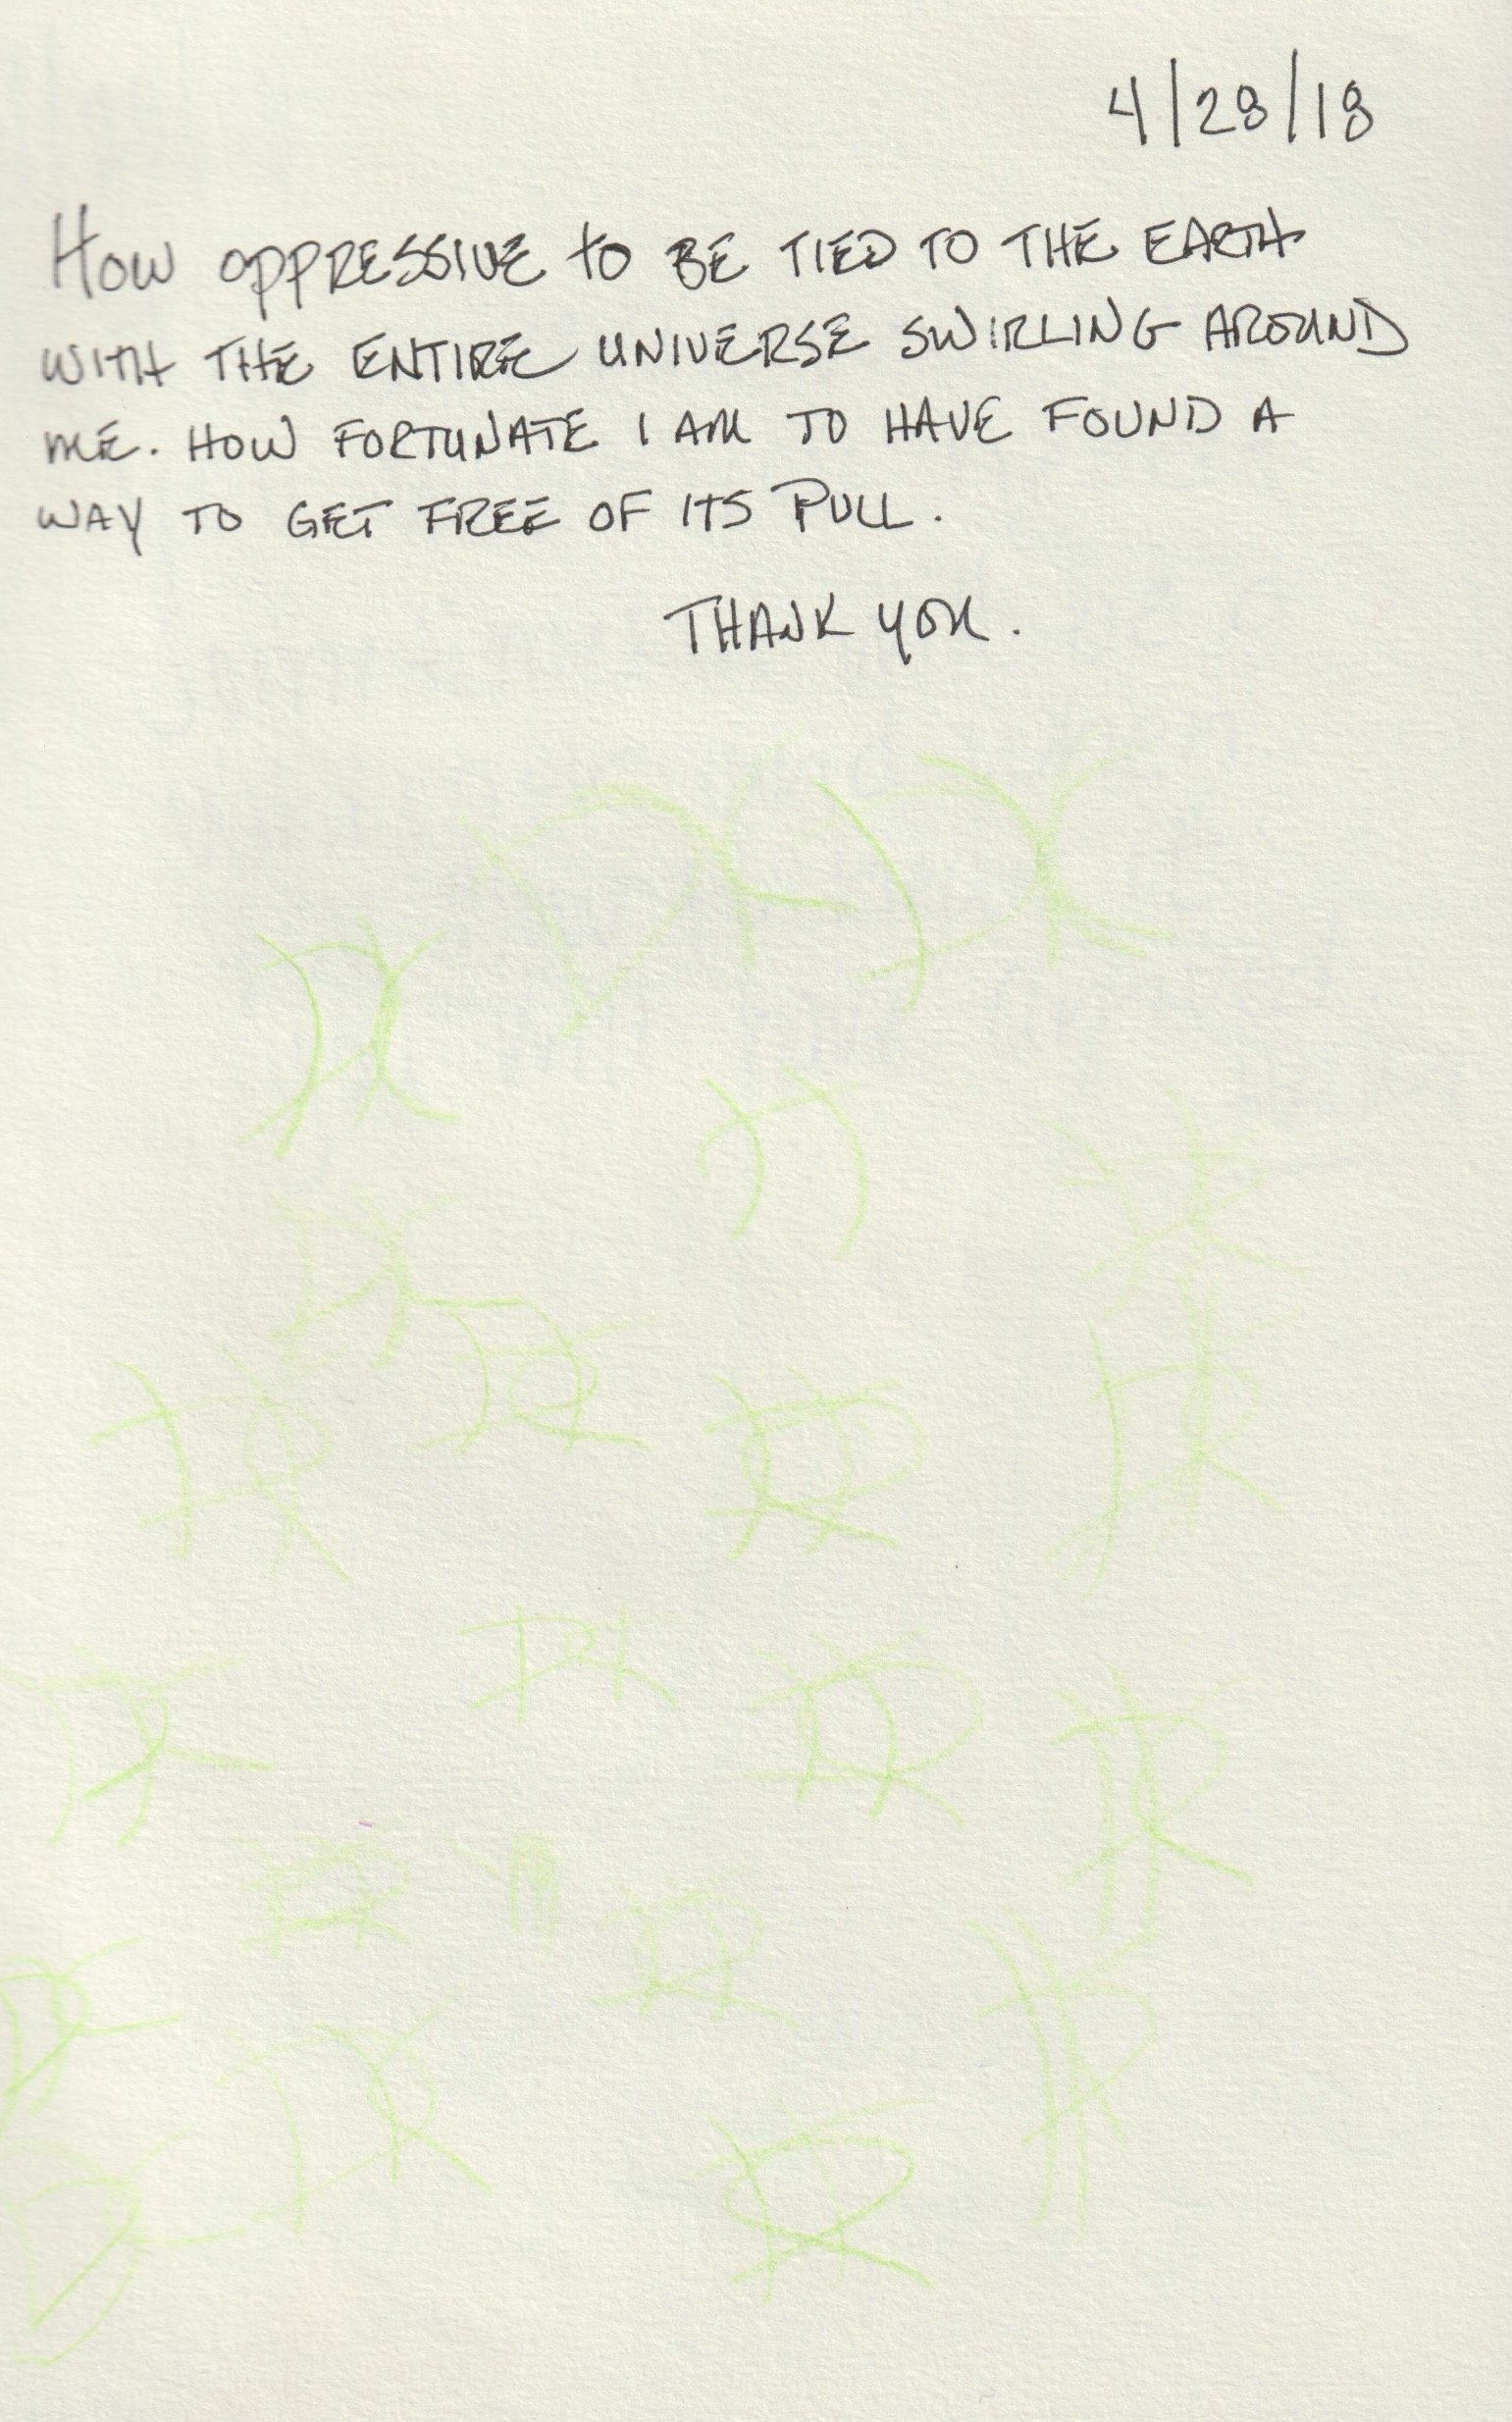 4/28/18
How OPPRESSIVE to BE TIED TO THE EARTH
WITH THE ENTIRE UNIVERSE SWIRLING AROUND
ME. HOW FORTUNATE I AM TO HAVE FOUND A
WAY TO GET FREE OF ITS PULL.
THANK YOU.